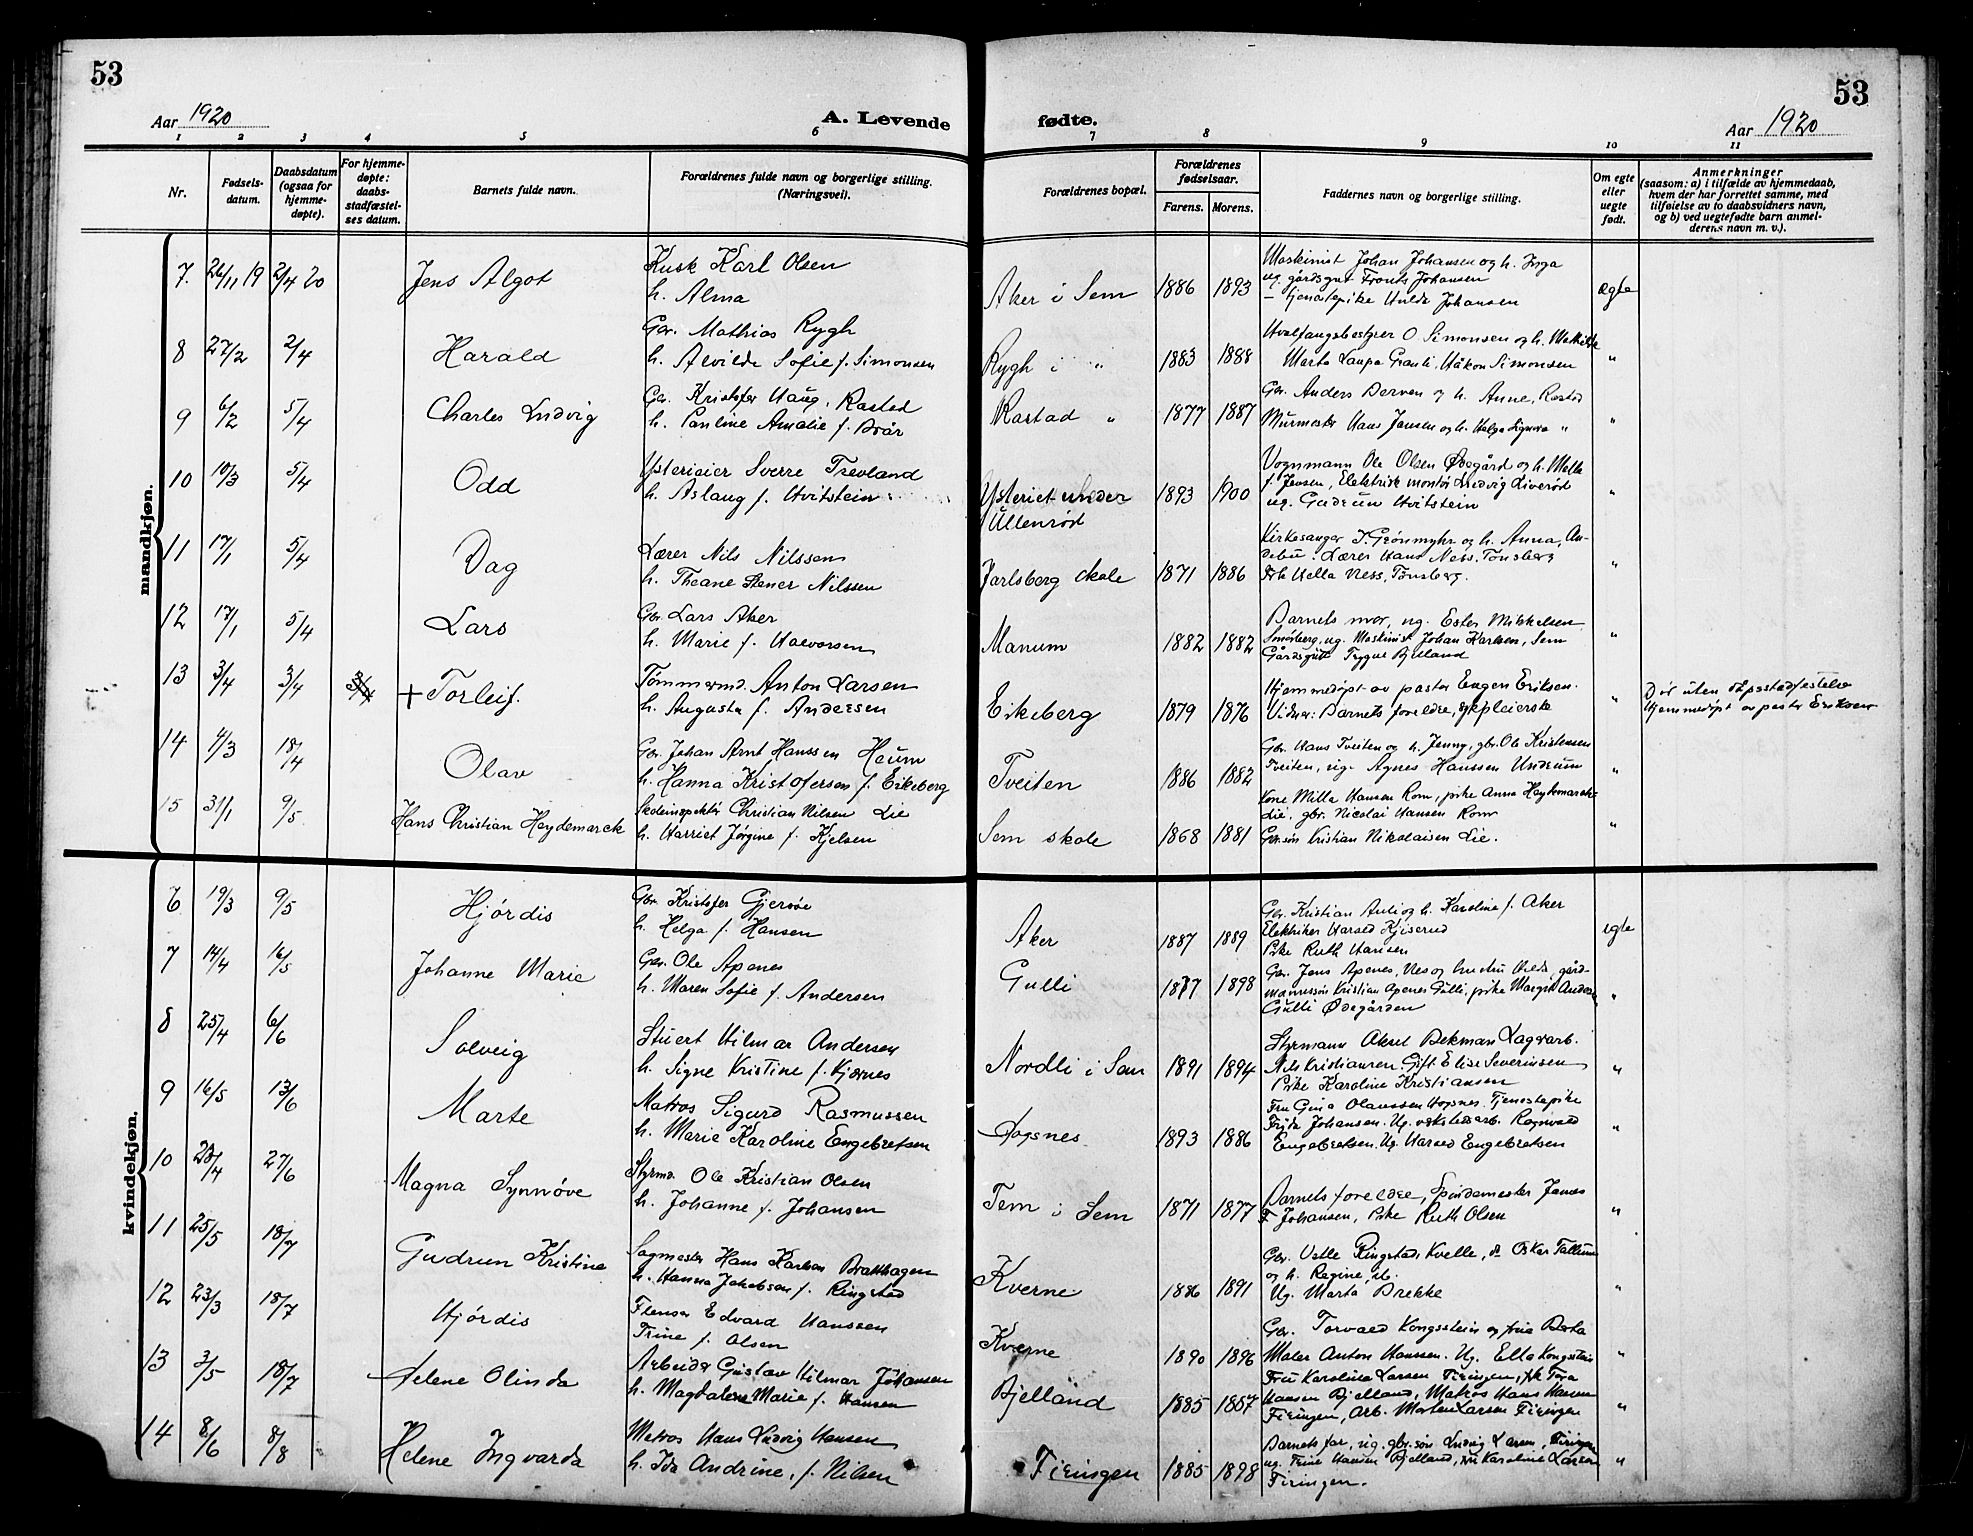 53
53
Aar 1920
A. Levende
fødte.
Aar 1920
1 2 3 4 5 6 7 8 9 10 11
Nr.
Fødsels-
datum.
Daabsdatum
(ogsaa for
hjemme-
døpte).
For hjemme-
døpte:
daabs-
stadfæstel-
ses datum.
Barnets fulde navn.
Forældrenes fulde navn og borgerlige stilling.
(Næringsvei).
Forældrenes bopæl.
Forældrenes
fødselsaar.
Farens. Morens.
Faddernes navn og borgerlige stilling.
Om egte
eller
uegte
født.
Anmerkninger
(saasom: a) i tilfælde av hjemmedaab,
hvem der har forrettet samme, med
tilføielse av to daabsvidners navn,
og b) ved uegtefødte barn anmel-
derens navn m. v.).
mandkjøn.
7. 26/11 19 2/4 20 Jens Algot
Kusk Karl Olsen
h. Alma
Aker i Sem 1886 1893
Maskinist Johan Johansen og h. Inga
ug. gårdsgut Johansen
– tjenestepike Hulda Johansen
egte
8 27/2 2/4 Harald
Gbr. Mathias Rygh
h. Alvilde Sofie f. Simonsen
Rygh i " 1883 1888
Hvalfangstbestyrer O Simonsen og h. Mathilde
Marta Granli, Håkon Simonsen
"
9 6/2 5/4 Charles Ludvig
Gbr. Kristofer Haug, Rastad
h. Pauline Amalie f. Brår
Rastad " 1877 1887
Gbr. Anders Berven og h. Anne, Rastad
Murmester Hans Jensen og h. Helga Signora "
"
10 10/3 5/4 Odd
Ysterieier Sverre Trevland
h. Aslaug f. Hvitstein
Ysteriet under
Ullenrød
1893 1900
Vognmann Ole Olsen Ødegård og h. Mille
f. Jensen, Elektrisk montør Ludvig Liverød
ug. Gudrun Hvitstein
"
11 17/1 5/4 Dag
Lærer Nils Nilssen
h. Theane Stener Nilssen
Jarlsberg skole 1871 1886
Kirkesanger I. Grønmyhr og h. Anna, An-
debu. Lærer Hans Ness, Tønsberg
Frk Hella Ness, Tønsberg.
"
12 17/1 5/4 Lars
Gbr. Lars Aker
h. Marie f. Halvorsen
Manum 1882 1882
Barnets mor, ug. Ester Mikkelsen
Smørberg, ug. Maskinist Johan Karlsen, Sem
Gårdsgutt Trygve Bjelland
"
13 3/4 3/4 3/4 + Torleif.
Tømmermd. Anton Larsen
h. Augusta f. Andersen
Eikeberg 1879 1876
Hjemmedøpt av pastor Eugen Eriksen.
Vidner: Barnets foreldre, sykepleierske
"
Død uten dåpsstadfestelse
Hjemmedøpt av pastor Eriksen
14 4/3 18/4 Olav
Gbr. Johan Arnt Hanssen Heum
h. Hanna Kristofersen f. Eikeberg
Tveiten 1886 1882
Gbr. Hans Tveiten og h. Jenny, gbr. Ole Kristensen
Tveiten, ug. Agnes Hanssen Undrum
"
15 31/1 9/5 Hans Christian Heydemarck
Skoleinspektør Christian Nilsen Lie
h. Harriet Jørgine f. Kjelsen
Sem skole 1868 1881
Kone Milla Hansen Rom, pike Anna Heydemarck
Lie, gbr. Nicolai Hansen Rom
Gbr.søn Kristian Nikolaisen Lie.
"
kvindekjøn.
6 19/3 9/5 Hjørdis
Gbr. Kristofer Gjersøe
h. Helga f. Hansen
Aker 1887 1889
Gbr. Kristian Auli og h. Karoline f. Aker
Elektriker Harald Kjiserud
Pike Ruth Hansen
egte
7 14/4 16/5 Johanne Marie
Gbr. Ole Apenes
h. Maren Sofie f. Andersen
Gulli 1877 1898
Gbr. Jens Apenes, Nes og hustru Hilda, gård-
mannssøn Kristian Apenes Gulli, pike Margit Andersen
Gulli Ødegården
"
8 25/4 6/6 Solveig
Stuert Hilmar Andersen
h. Signe Kristine f. Kjernes
Nordli i Sem 1891 1894
Styrmann Aksel Bekman Lagerarb.
Nils Kristiansen. Gift Elise Severinsen
Pike Karoline Kristiansen
"
9 16/5 13/6 Marte
Matros Sigurd Rasmussen
h. Marie Karoline Engebretsen
Hogsnes 1893 1886
Fru Gina Olaussen Hogsnes. Tjenestepike
Frida Johansen. Ug. verkstedsarb. Ragnvald
Engebretsen. Ug. Harald Engebretsen
"
10 28/4 27/6 Magna Synnøve
Styrmd. Ole Kristian Olsen
h. Johanne f. Johansen
Tem i Sem 1871 1877
Barnets foreldre, Spindemester James
F Johansen, Pike Ruth Olsen
"
11 25/5 18/7 Gudrun Kristine
Sagmester Hans Karlsen Bratthagen
h. Hanna Jakobsen f. Ringstad
Kverne 1886 1891
Gbr. Ringstad, Kvelle, do Oskar Tallum
og h. Regine, do.
Ug. Marta Brekke
"
12 23/3 18/7 Hjørdis
Flenser Edvard Hanssen
Trine f. Olsen
Kverne 1890 1896
Gbr. Torvald Kongsstein og frue Berta
Maler Anton Hanssen. Ug. Ella Kongsstein
"
13 3/5 18/7 Helene Olinda
Arbeider Gustav Hilmar Johansen
h. Magdalene Marie f. Hansen
Bjelland 1885 1887
Fru Karoline Larsen Firingen, pk Tora
Hansen Bjelland, Matros Hans Hansen
Firingen, Arb. Morten Larsen Firingen
"
14 8/6 8/8 Helene Ingvarda
Matros Hans Ludvig Hansen
h. Ida Andrine, f. Nilsen
Firingen 1885 1898
Barnets far, ug. gbr.søn Ludvig Larsen, Firingen
ug. Trine Hansen Bjelland, fru Karoline Larsen
Firingen.
"